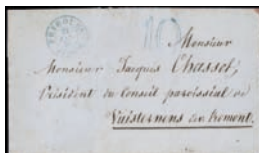 FRIBOURG
10
Monsieur
Monsieur Jacques Chassot,
Président du Conseil paroissial de
Vuisternens dvt Romont.